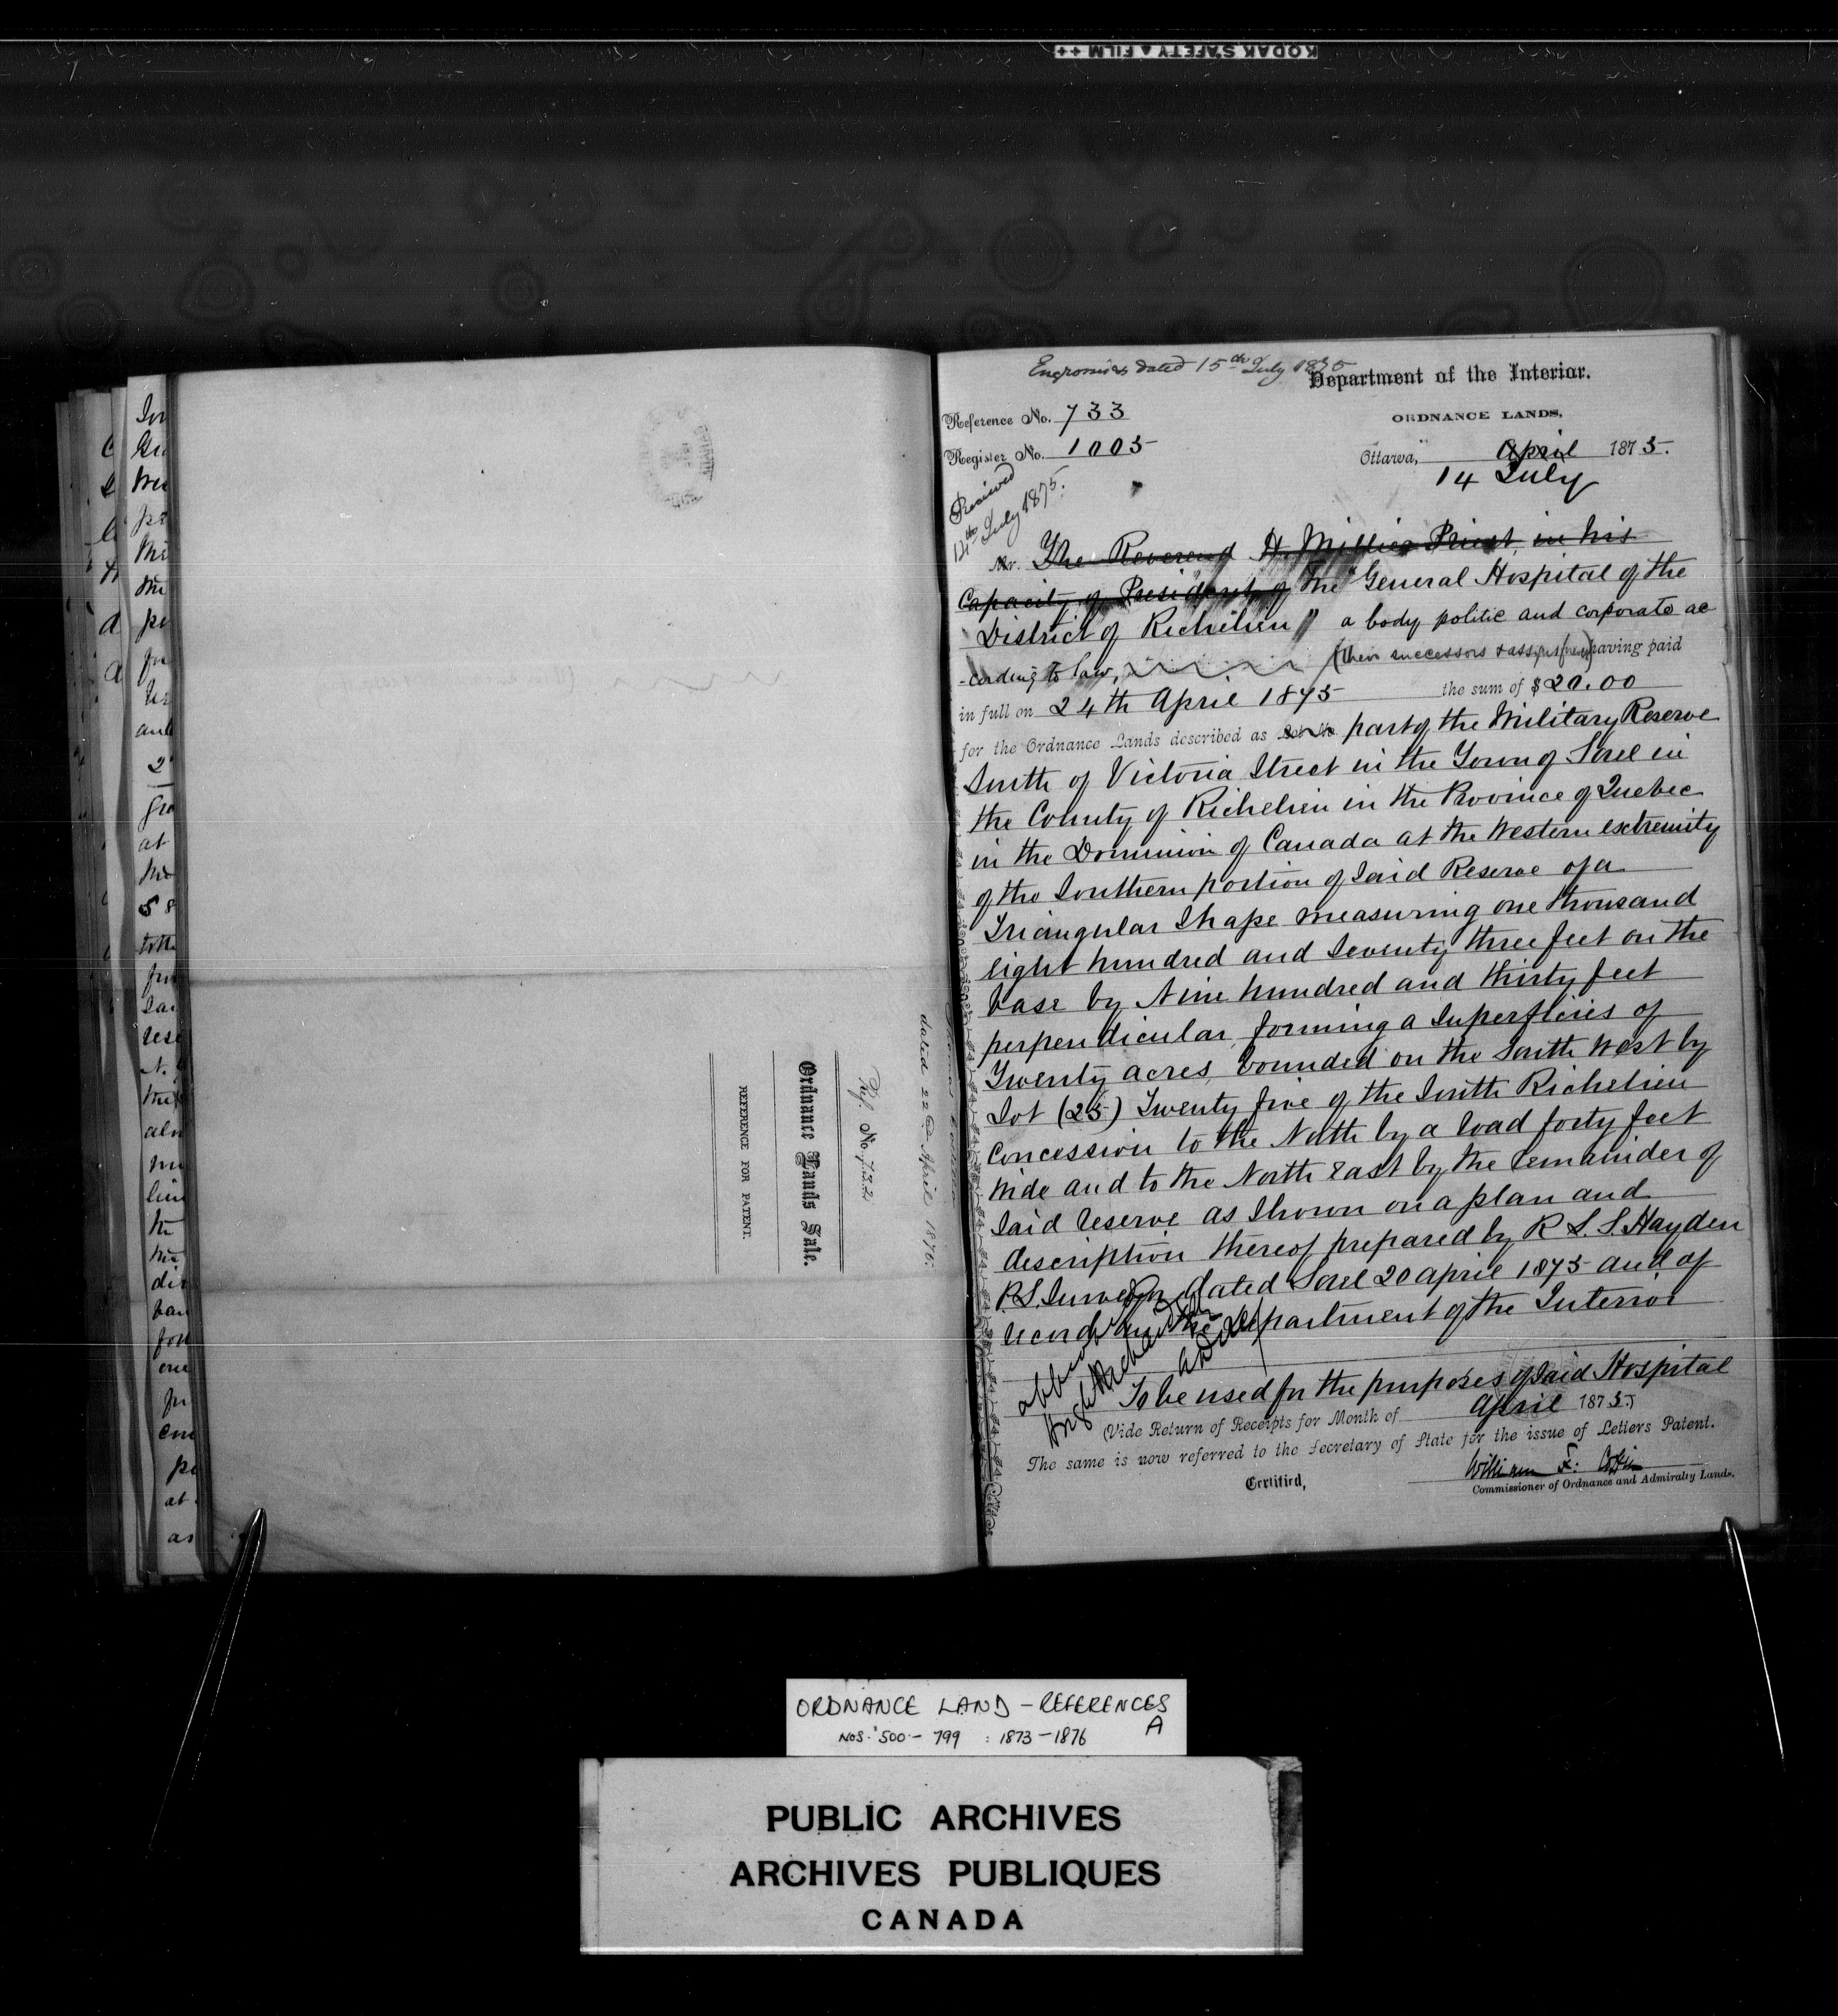 KODAK SAFETY ▲ FILM ++
Engrossed dated 15th July 1875
Department of the Interior.
ORDNANCE LANDS,
Reference No. 733
Register No. 1005
Ottawa, April 1875.
14 July
Received
14th July 1875.
Mr. The Reverend H. Millier Priest in his
Capacity of President of The "General Hospital of the
District of Richelieu" a body politic and corporate ac
-cording to law, (their successors & assigns) having paid
in full on 24th April 1875 the sum of $20.00
for the Ordnance Lands described as Lot No. part of the Military Reserve
South of Victoria Street in the Town of Sorel in
the County of Richelieu in the Province of Quebec
in the Dominion of Canada at the Western extremity
of the Southern portion of Said Reserve of a
Triangular Shape measuring one thousand
eight hundred and Seventy three feet on the
base by Nine hundred and thirty feet
perpendicular, forming a Superficies of
Twenty acres, bounded on the South West by
Lot (25) Twenty five of the South Richelieu
Concession to the North by a road forty feet
wide and to the North East by the remainder of
Said reserve as Shown on a plan and
description thereof prepared by R S. S. Hayden
P.L. Surveyor dated Sorel 20 April 1875 and of
record in the Department of the Interior
To be used for the purposes of Said Hospital
(Vide Return of Receipts for Month of April 1875.)
The same is now referred to the Secretary of State for the issue of Letters Patent.
Certified,
William F. Coffin
Commissioner of Ordnance and Admiralty Lands.
dated 22d April 1876.
Ref. No. 732
Ordnance Lands Sale.
REFERENCE FOR PATENT.
ORDNANCE LAND - REFERENCES
NOS. 500 - 799 : 1873 - 1876 A
PUBLIC ARCHIVES
ARCHIVES PUBLIQUES
CANADA